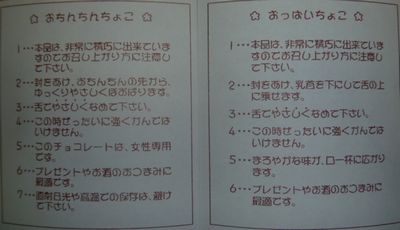 ☆ おちんちんちょこ ☆
1…本品は、非常に精巧に出来ていま
すのでお召し上がり方に注意し
て下さい。
2…封をあけ、おちんちんの先から、
ゆっくりやさしくほおばります。
3…舌でやさしくなめて下さい。
4…この時ぜったいに強くかんでは
いけません。
5…このチョコレートは、女性専用
です。
6…プレゼントやお酒のおつまみに
最適です。
7…直射日光や高温での保存は、避け
て下さい。
☆ おっぱいちょこ ☆
1…本品は、非常に精巧に出来ていま
すのでお召し上がり方に注意し
て下さい。
2…封をあけ、乳首を下にして舌の上
に乗せます。
3…舌でやさしくなめて下さい。
4…この時ぜったいに強くかんでは
いけません。
5…まろやかな味が、口一杯に広がり
ます。
6…プレゼントやお酒のおつまみに
最適です。